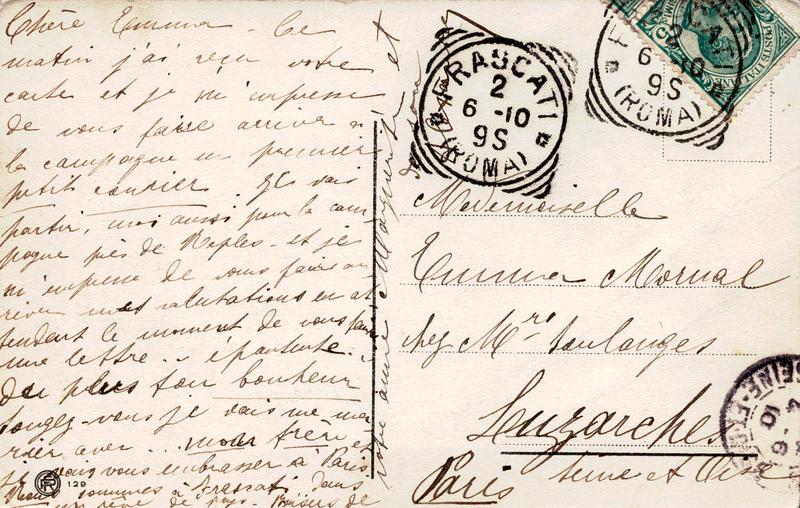 Chère Emma - Ce
matin j'ai reçu votre
carte et je m'empresse
de vous faire arriver à
la campagne un premier
petit courrier. Je vais
partir, moi aussi pour la cam
pagne près de Naples - et je
m'empresse de vous faire ar
river mes salutations en at
tendant le moment de vous faire
une lettre... épatante.
Du plus ton bonheur
songez-vous je vais me ma
rier avec ... mon frère et
je vais vous embrasser à Paris
Nous sommes à Frascati dans
un rêve de pays. Baisers de
votre amie Marguerite et
FRASCATI
2
6 -10
9S
(ROMA)
2
6 -10
9S
(ROMA)
POSTE ITALIANE
Mademoiselle
Emma Mornal
chez Mr. Boulanges
Luzarches
Seine et Oise
Paris
SEINE-ET-OISE
129